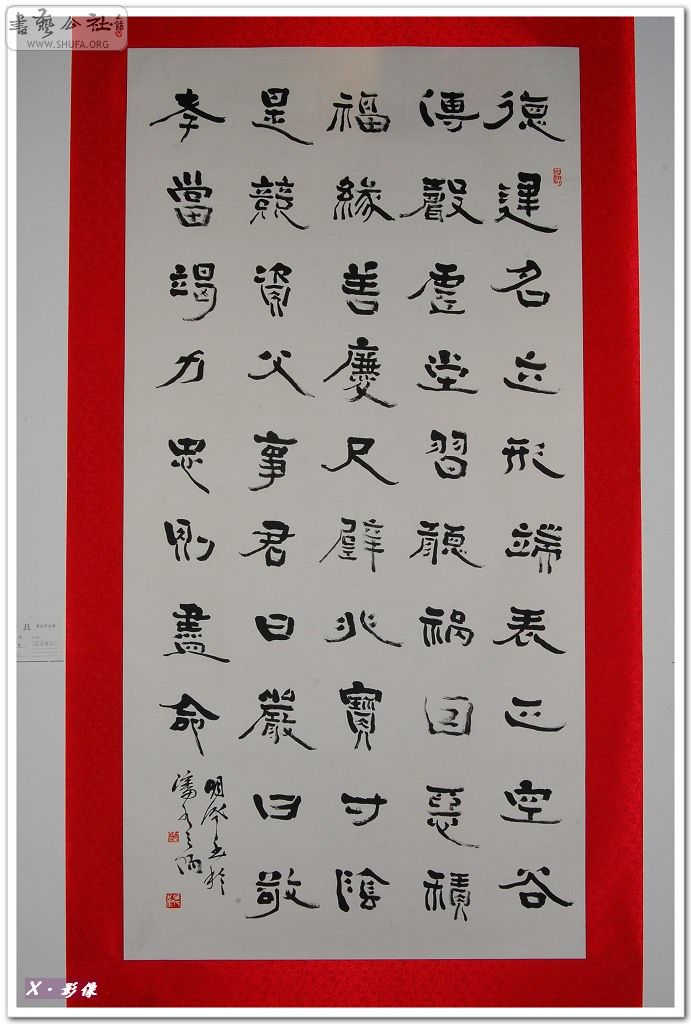 德建名立形端表正空谷
傳聲虛堂習聽禍因惡積
福緣善慶尺璧非寶寸陰
是競資父事君曰嚴曰敬
孝當竭力忠則盡命
書藝公社
WWW.SHUFA.ORG
X·影像